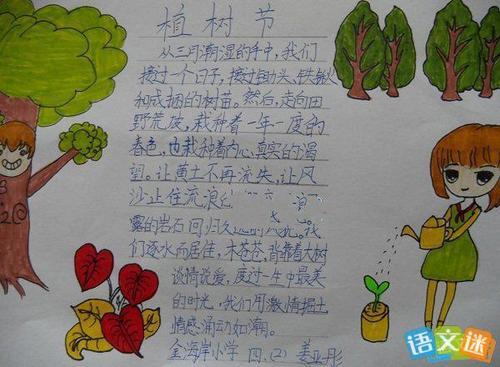 植树节
从三月潮湿的手中，我们
接过一个日子，接过锄头、铁锹
和成捆的树苗。然后，走向田
野荒坡，栽种着一年一度的
春色，也栽种着内心真实的渴
望。让黄土不再流失，让风
沙止住流浪
露的岩石回归 我
们逐水而居住，木苍苍，背靠着大树
谈情说爱，度过一生中最美
的时光，我们用激情掘土
情感涌动如潮。
金海岸小学 四.(2) 姜亚彤
语文迷